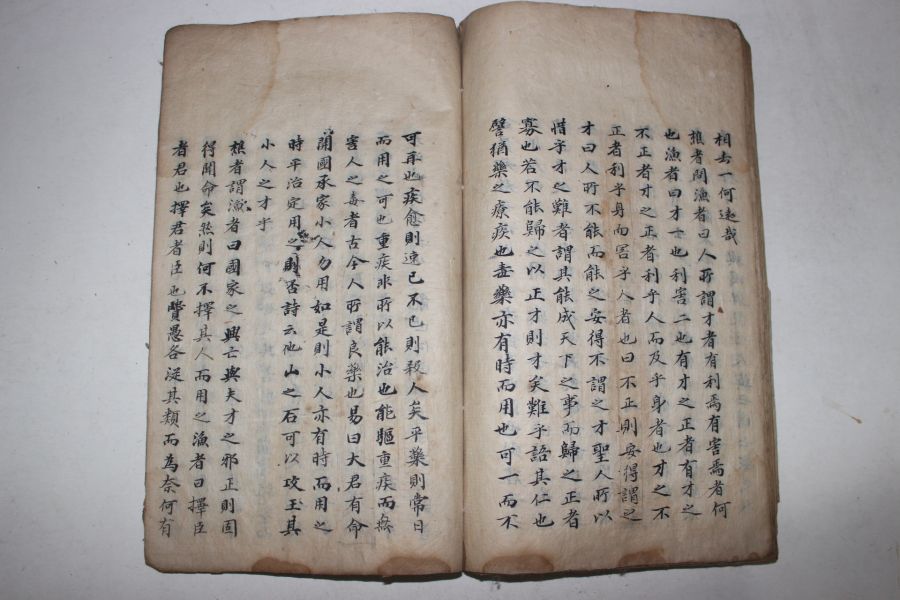 相去一何遠哉
樵者問漁者曰人所謂才者有利焉有害焉者何
也漁者曰才一也利害二也有才之正者有才之
不正者才之正者利乎人而及乎身者也才之不
正者利乎身而害乎人者也曰不正則安得謂之
才曰人所不能而能之安得不謂之才聖人所以
惜乎才之難者謂其能成天下之事而歸之正者
寡也若不能歸之以正才則才矣難乎語其仁也
譬猶藥之療疾也毒藥亦有時而用也可一而不
可再也疾愈則速已不已則殺人矣平藥則常日
而用之可也重疾非所以能治也能驅重疾而無
害人之毒者古今人所謂良藥也易曰大君有命
開國承家小人勿用如是則小人亦有時而用之
時平治定用之則否詩云他山之石可以攻玉其
小人之才乎
樵者謂漁者曰國家之興亡與夫才之邪正則固
得聞命矣然則何不擇其人而用之漁者曰擇臣
者君也擇君者臣也賢愚各從其類而為奈何有